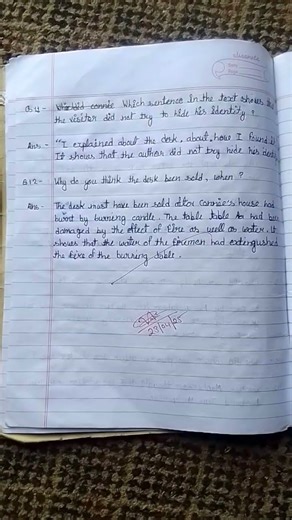 Q.4- Which sentence in the text shows
the visitor did not try to hide his identity ?
Ans - "I explained about the desk, about how I found it
It shows that the author did not try hide his
Q12- Why do you think the desk been sold, when ?
Ans - The desk must have been sold after Connie's house had
burnt by burning candle. The table to had been
damaged by the effect of fire as well as water. It
shows that the water of the firemen had extinguished
the fire of the burning table.
23/04/25